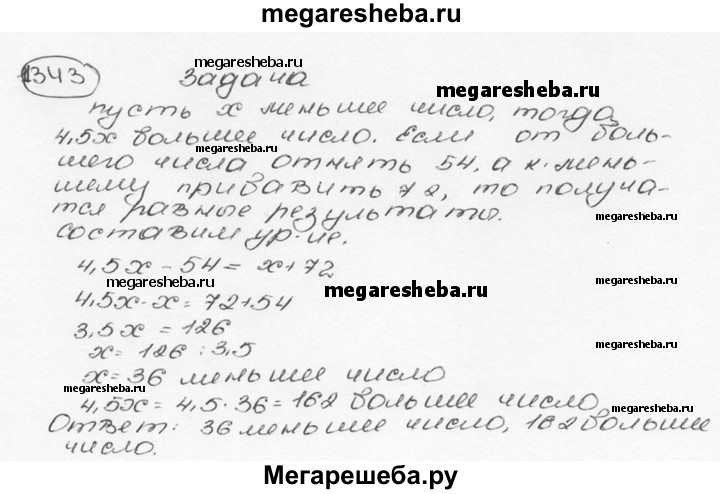 megaresheba.ru
1343
задача
megaresheba.ru
megaresheba.ru
пусть х меньшее число, тогда
4,5х большее число. Если от боль-
megaresheba.ru
шего числа отнять 54, а к мень-
megaresheba.ru
шему прибавить 72, то получа-
ются равные результаты.
megaresheba.ru
составим ур-ие.
megaresheba.ru
4,5х - 54 = х + 72
megaresheba.ru
4,5х - х = 72 + 54
megaresheba.ru
3,5х = 126
х = 126 : 3,5
х = 36 меньшее число
megaresheba.ru
4,5х = 4,5 · 36 = 162 большее число
megaresheba.ru
Ответ: 36 меньшее число, 162 большее
число.
Мегарешеба.ру